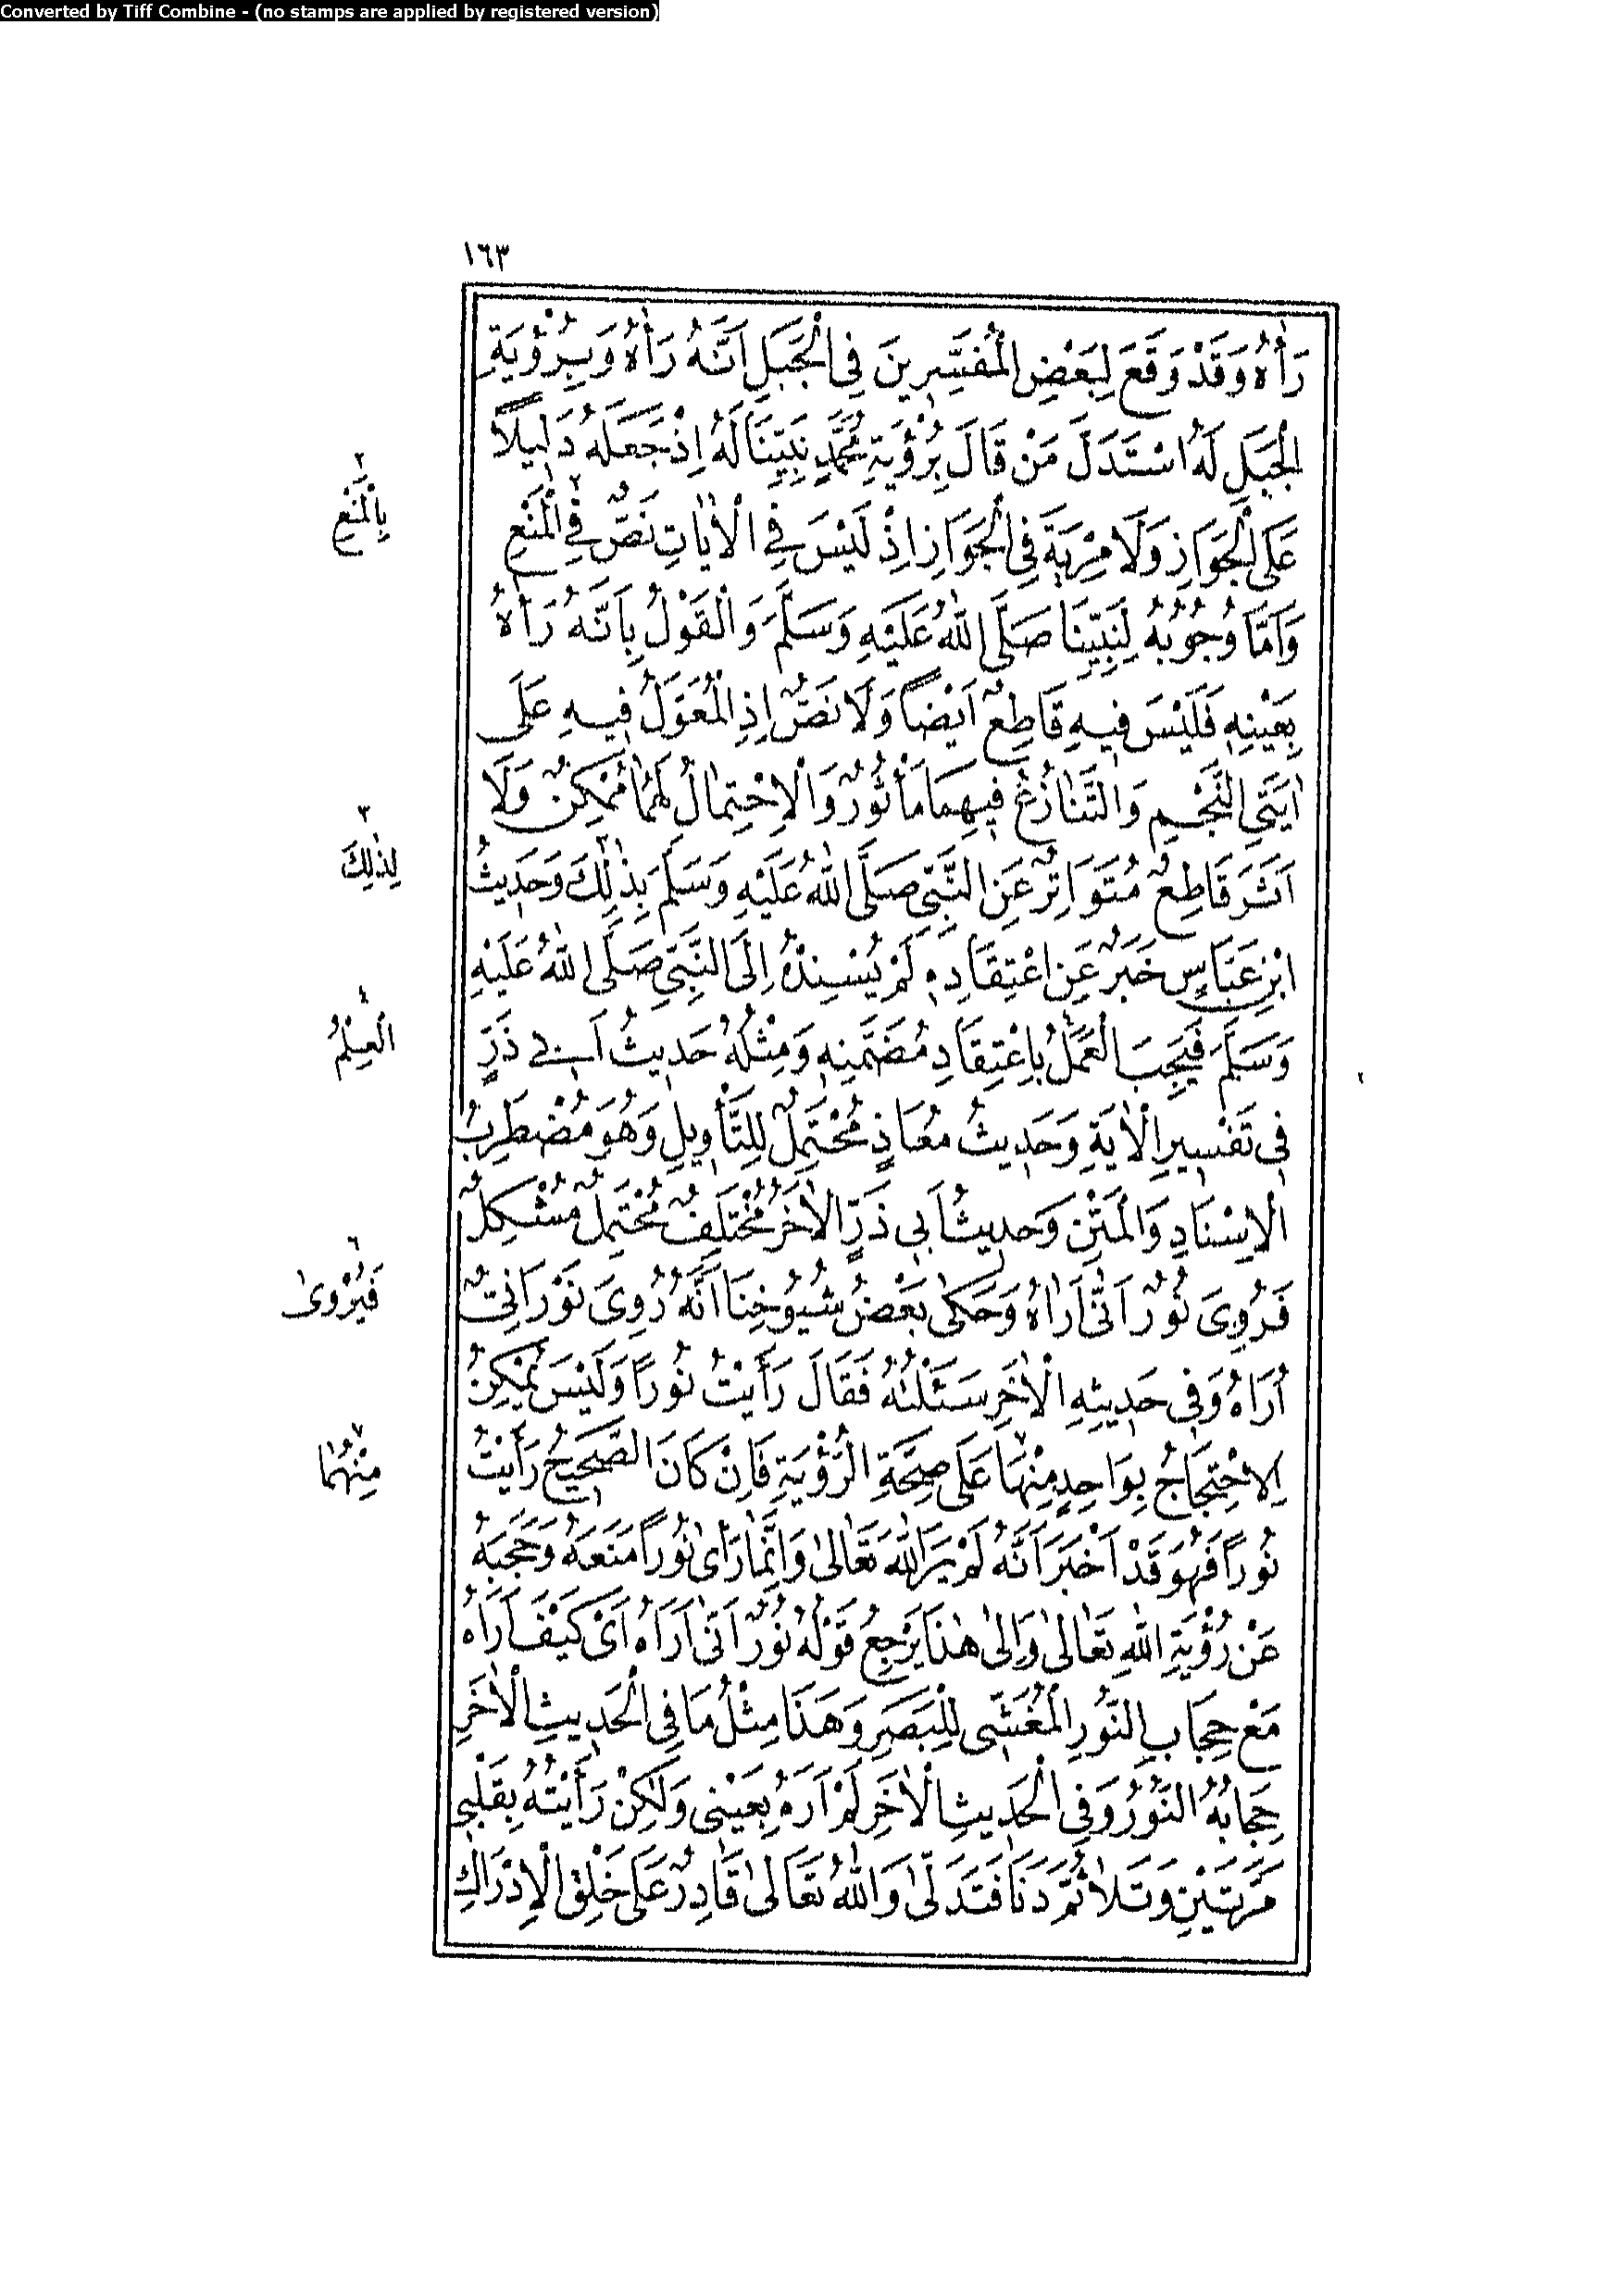 Converted by Tiff Combine - (no stamps are applied by registered version)
١٦٣
رَأٰهُ وَقَدْ وَقَعَ لِبَعْضِ الْمُفَسِّرِينَ فِى الْجَبَلِ اَنَّهُ رَأٰهُ وَبِرُؤْيَةِ
الْجَبَلِ لَهُ اسْتَدَلَّ مَنْ قَالَ بِرُؤْيَةِ مُحَمَّدٍ نَبِيِّنَا لَهُ اِذْ جَعَلَهُ دَلِيلًا
عَلَى الْجَوَازِ وَلَا مِرْيَةَ فِى الْجَوَازِ اِذْ لَيْسَ فِى الْاٰيَاتِ نَصٌّ ٢ فِى الْمَنْعِ
٢
بِالْمَنْعِ
وَاَمَّا وُجُوبُهُ لِنَبِيِّنَا صَلَّى اللّٰهُ عَلَيْهِ وَسَلَّمَ وَالْقَوْلُ بِاَنَّهُ رَأٰهُ
بِعَيْنِهِ فَلَيْسَ فِيهِ قَاطِعٌ اَيْضًا وَلَا نَصٌّ اِذِ الْمُعَوَّلُ فِيهِ عَلَى
اٰيَتَىِ النَّجْمِ وَالتَّنَازُعُ فِيهِمَا مَأْثُورٌ وَالْاِحْتِمَالُ لَهُمَا مُمْكِنٌ وَلَا
اَثَرَ قَاطِعٌ مُتَوَاتِرٌ عَنِ النَّبِىِّ صَلَّى اللّٰهُ عَلَيْهِ وَسَلَّمَ بِذٰلِكَ وَحَدِيثُ
٣
لِذٰلِكَ
ابْنِ عَبَّاسٍ خَبَرٌ عَنِ اعْتِقَادِهِ لَمْ يُسْنِدْهُ اِلَى النَّبِىِّ صَلَّى اللّٰهُ عَلَيْهِ
وَسَلَّمَ فَيَجِبَ الْعَمَلُ بِاعْتِقَادِ مُضَمَّنِهِ وَمِثْلُهُ حَدِيثُ اَبِى ذَرٍّ
٤
الْعِلْمُ
فِى تَفْسِيرِ الْاٰيَةِ وَحَدِيثُ مُعَاذٍ مُحْتَمِلٌ لِلتَّأْوِيلِ وَهُوَ مُضْطَرِبُ
الْاِسْنَادِ وَالْمَتْنِ وَحَدِيثُ اَبِى ذَرٍّ الْاٰخَرُ مُخْتَلِفٌ مُحْتَمِلٌ مُشْكِلٌ
فَرُوِىَ نُورٌ اَنّٰى اَرَاهُ وَحَكٰى بَعْضُ شُيُوخِنَا اَنَّهُ رُوِىَ نَوْرَانِىٌّ
٦
فَيُرْوٰى
اُرَاهُ وَفِى حَدِيثِهِ الْاٰخَرِ سَئَلْتُهُ فَقَالَ رَأَيْتُ نُورًا وَلَيْسَ يُمْكِنُ
الِاحْتِجَاجُ بِوَاحِدٍ مِنْهَا ٧ عَلَى صِحَّةِ الرُّؤْيَةِ فَاِنْ كَانَ الصَّحِيحُ رَأَيْتُ
٧
مِنْهُمَا
نُورًا فَهُوَ قَدْ اَخْبَرَ اَنَّهُ لَمْ يَرَ اللّٰهَ تَعَالٰى وَاِنَّمَا رَأٰى نُورًا مَنَعَهُ وَحَجَبَهُ
عَنْ رُؤْيَةِ اللّٰهِ تَعَالٰى وَاِلٰى هٰذَا يَرْجِعُ قَوْلُهُ نُورٌ اَنّٰى اَرَاهُ اَىْ كَيْفَ اَرَاهُ
مَعْ حِجَابِ النُّورِ الْمُغَشِّى لِلْبَصَرِ وَهَذَا مِثْلُ مَا فِى الْحَدِيثِ الْاٰخَرِ
حِجَابُهُ النُّورُ وَفِى الْحَدِيثِ الْاٰخَرِ لَمْ اَرَهُ بِعَيْنِى وَلٰكِنْ رَأَيْتُهُ بِقَلْبِى
مَرَّتَيْنِ وَتَلَا ثُمَّ دَنَا فَتَدَلّٰى وَاللّٰهُ تَعَالٰى قَادِرٌ عَلَى خَلْقِ الْاِدْرَاكِ